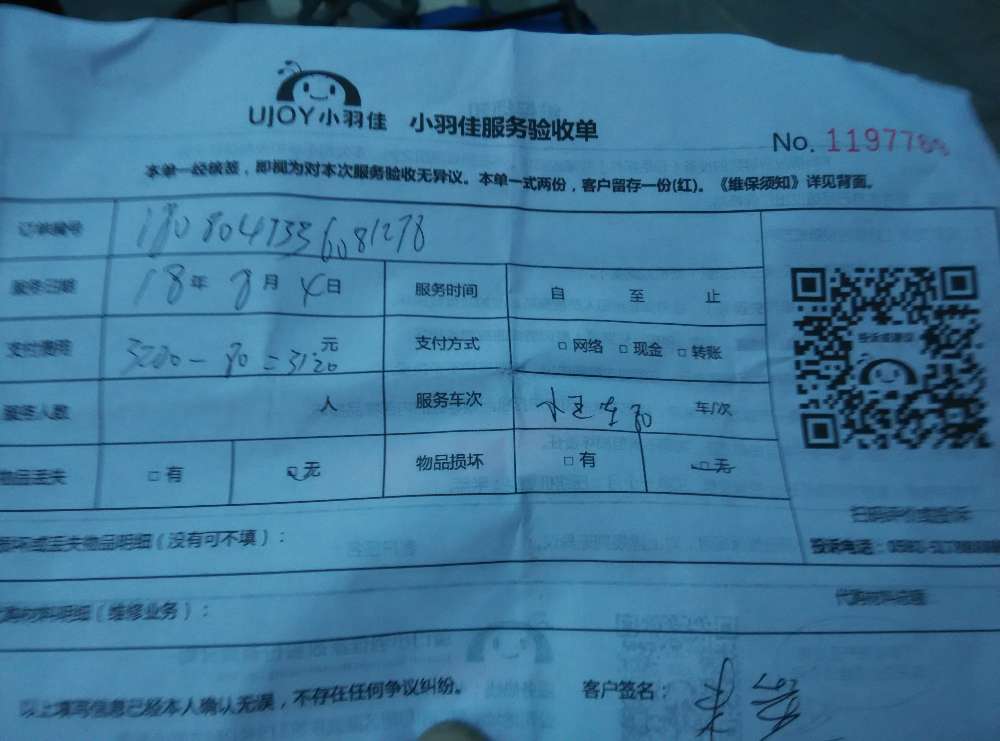 UJOY小羽佳 小羽佳服务验收单
No. 11977
本单一经核签，即视为对本次服务验收无异议。本单一式两份，客户留存一份(红)。《维保须知》详见背面。
订单编号
服务日期 18年 8月 4日 服务时间 自 至 止
支付费用 3200-80=3120元 支付方式 □网络 □现金 □转账
服务人数 人 服务车次 车/次
物品丢失 □有 □无 物品损坏 □有 □无
投诉或建议
扫码评价或投诉
损坏或丢失物品明细（没有可不填）：
投诉电话：
代购材料明细（维修业务）：
以上填写信息已经本人确认无误，不存在任何争议纠纷。 客户签名：